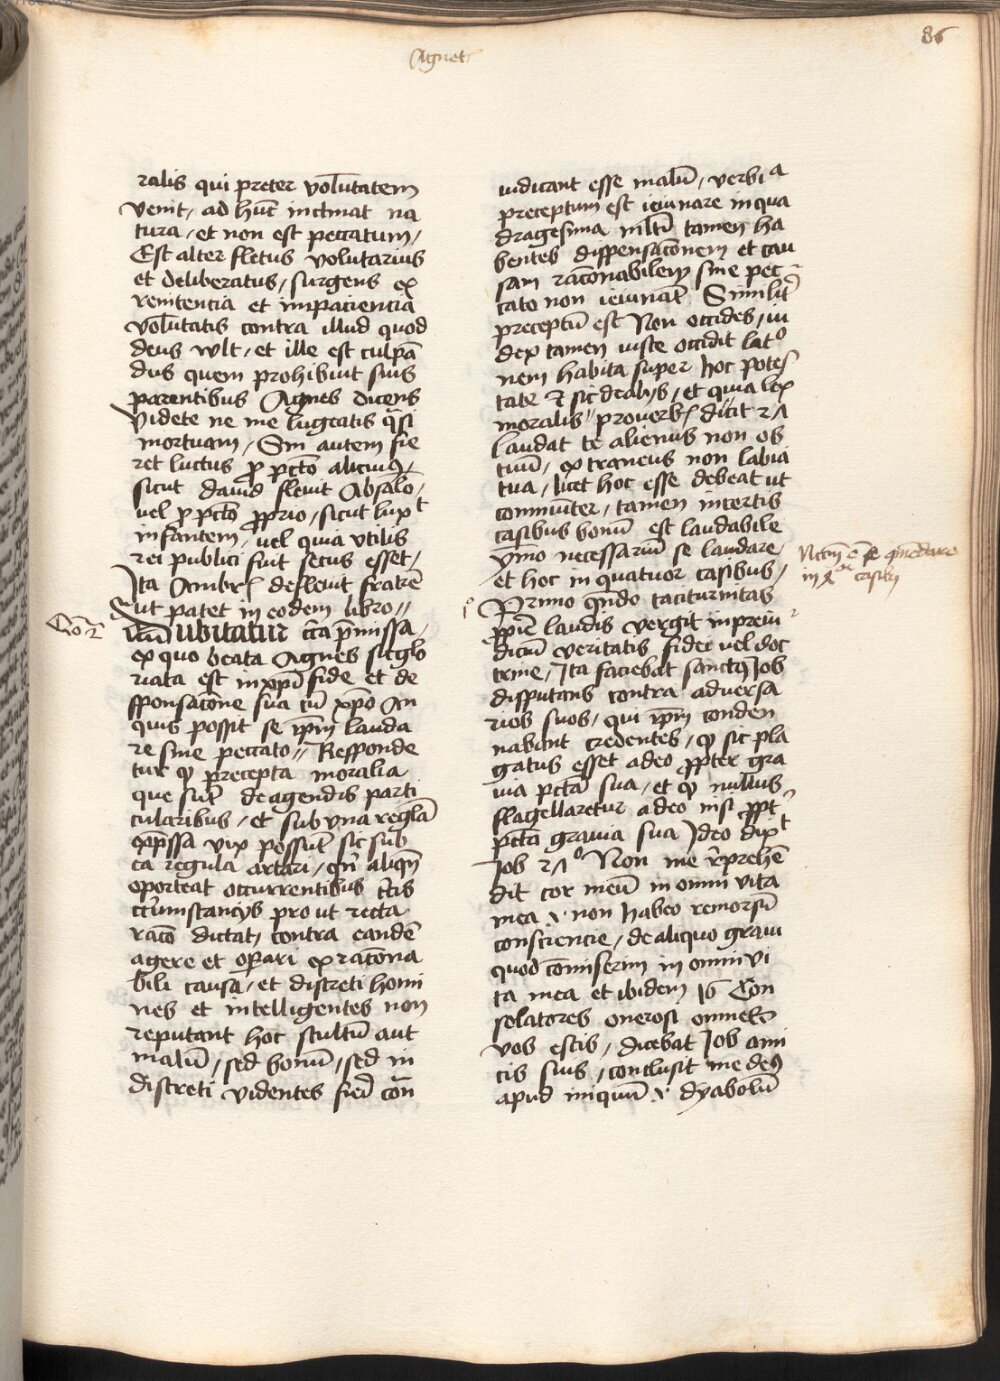 Agnet
86
ralis qui preter volūtatem
venit, ad hūc inclinat na
tura, et non est peccatum,
Est alter fletus voluntarius
et deliberatus, surgens ex
renitencia et impaciencia
volūtatis contra illud quod
deus wlt, et ille est culpā
dus quem prohibuit suis
parentibus Agnes dicens
Videte ne me lugeatis q̄si
mortuam, Sin autem fie
ret luctus p̱ pctō alicuiꝰ,
sicut dauid fleuit Absalō,
vel p̱ pctō ꝓprio, sicut lupᵗ
infantem, vel quia vtilis
rei publici fuit secus esset,
Ita Ambr̄ defleuit fratrē
Sut patet in eodem libro,,
Dubitatur c̄ca p̄missa,
ex quo beata Agnes sic glo
riata est in xp̄i fide et de
sponsacōne sua cū xp̄o An
quis possit se ip̄m lauda
re sine peccato,, Responde
tur ꝙ precepta moralia
que sūt de agendis parti
cularibus, et sub vna regl̄a
exp̄ssa vix possūt sic sub
ca regula artari, qn̄ aliqn̄
oporteat occurrentibus c̄tis
circūmstancijs pro ut recta
racō dictat, contra eandē
agere et op̱ari ex racōna
bili causa, et discreti homi
nes et intelligentes non
reputant hoc stultū aut
malū, sed bonū, sed in
discreti videntes fieri con̄
iudicant esse malū, verbi a
preceptum est ieiunare in qua
dragesima mltī tamen ha
bentes dispensacōnem et cau
sam racōnabilem sine pec
cato non ieiunāt Similit̄
preceptū est Non occides, iu
dex tamen iuste occidit latº
nem habita super hoc potes
tate & sic de alijs, et quia lex
moralis proverb̄ dicit 27
laudat te alienus non os
tuū, extraneus non labia
tua, licet hoc esse debeat ut
commūnter, tamen in certis
casibus bonū est laudabile
ymo necessariū se laudare,
et hoc in quatuor casibus,
1º Primo qn̄do taciturnitas
ꝓprie laudis vergit in preiu
dicium veritatis fidei vel doc
trine, Ita faciebat sanctꝰ Job
disputans contra adversa
rios suos, qui ip̄m conden
nabant credentes, ꝙ sic pla
gatus esset a deo ꝓpter gra
uia pctā sua, et ꝙ nullus
flagellaretur a deo nisi ꝓpt̄
pctā grauia sua Ideo dixᵗ
Job 27º Non me rep̄hēn
dit cor meū in omni vita
mea i. non habeo remorsū
consciencie, de aliquo graui
quod cōmiserim in omni vi
ta mea et ibidem 16 Con
solatores onerosi omnes
vos estis, dicebat Job ami
cis suis, conclusit me deꝰ
apud iniquū i. dyabolū
in 4ºʳ casibꝰ